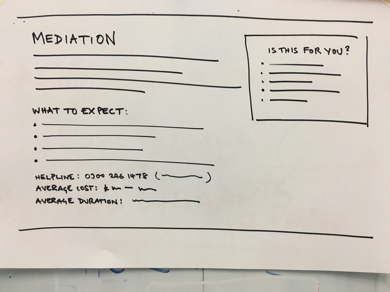 MEDIATION
IS THIS FOR YOU?
WHAT TO EXPECT:
HELPLINE: 0300 246 1478 ( )
AVERAGE COST:
AVERAGE DURATION: